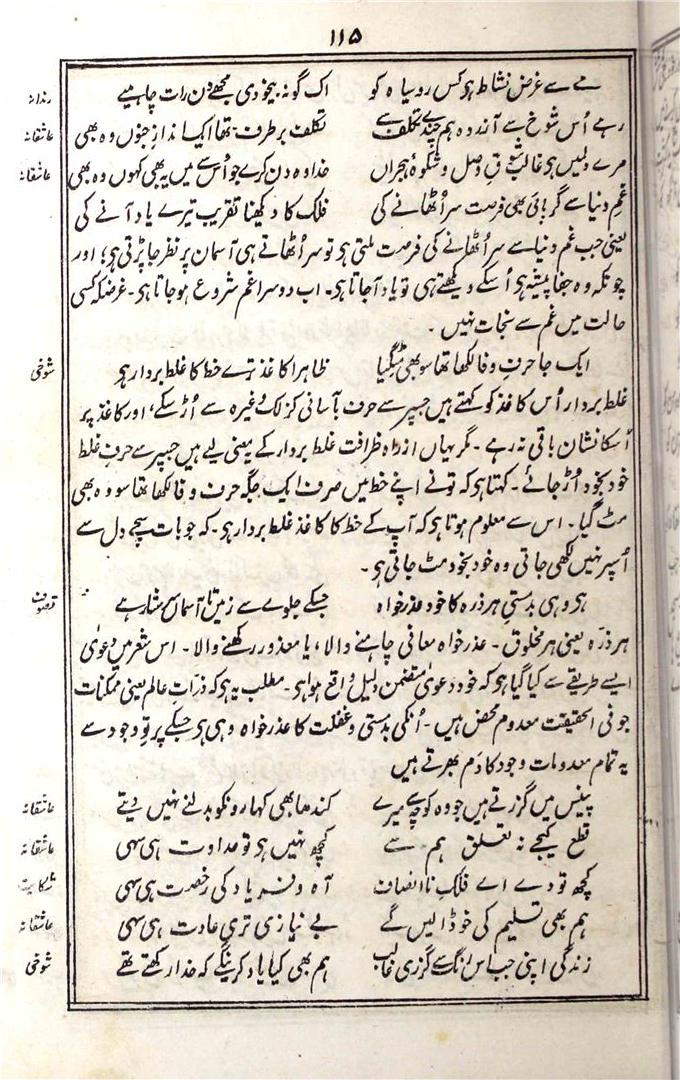 ۱۱۵
مے سے غرض نشاط ہو کس روسیاہ کو اک گونہ بیخودی مجھے دن رات چاہیے رندانہ
رہے اُس شوخ سے آزردہ ہم چندے تکلف سے تکلف برطرف تھا ایک انداز جنوں وہ بھی عاشقانہ
مرے دلمیں ہو غالب شوق وصل و شکوۂ ہجراں خدا وہ دن کرے جو اُس سے میں یہ بھی کہوں وہ بھی عاشقانہ
غمِ دنیا سے گر پائی بھی فرصت سر اُٹھانے کی فلک کا دیکھنا تقریب تیرے یاد آنے کی
یعنی جب غم دنیا سے سر اُٹھانے کی فرصت ملتی ہو تو سر اُٹھاتے ہی آسمان پر نظر جا پڑتی ہو؛ اور
چونکہ وہ جفا پیشہ ہو اُسکے دیکھتے ہی تو یاد آجاتا ہو۔ اب دوسرا غم شروع ہوجاتا ہو۔ غرضکہ کسی
حالت میں غم سے نجات نہیں۔
ایک جا حرفِ وفا لکھا تھا سو بھی مٹ گیا ظاہرا کاغذ ترے خط کا غلط بردار ہو شوخی
غلط بردار اُس کاغذ کو کہتے ہیں جسپر سے حرف بآسانی کزلک وغیرہ سے اُڑ سکے، اور کاغذ پر
اُسکا نشان باقی نہ رہے۔ مگر یہاں ازراہ ظرافت غلط بردار کے یہ معنی لیے ہیں جسپر سے حرفِ غلط
خود بخود اُڑ جائے۔ کہتا ہو کہ تو نے اپنے خط میں صرف ایک جگہ حرف وفا لکھا تھا سو وہ بھی
مٹ گیا۔ اس سے معلوم ہوتا ہو کہ آپ کے خط کا کاغذ غلط بردار ہو۔ کہ جو بات سچے دل سے
اُسپر نہیں لکھی جاتی وہ خود بخود مٹ جاتی ہو۔
ہو وہی بدمستیِ ہر ذرہ کا خود عذر خواہ جسکے جلوے سے زمیں تا آسماں سرشار ہے تصوف
ہر ذرّہ یعنی ہر مخلوق۔ عذر خواہ معافی چاہنے والا، یا معذور رکھنے والا۔ اس شعر میں دعویٰ
ایسے طریقے سے کیا گیا ہو کہ خود دعویٰ متضمن دلیل واقع ہوا ہو۔ مطلب یہ ہو کہ ذراتِ عالم یعنی ممکنات
جو فی الحقیقت معدوم محض ہیں۔ اُنکی بدمستی و غفلت کا عذر خواہ وہی ہو جسکے پرتو وجود سے
یہ تمام معدومات وجود کا دم بھرتے ہیں
پینس میں گزرتے ہیں جو وہ کوچے سے میرے کندھا بھی کہارونکو بدلنے نہیں دیتے عاشقانہ
قطع کیجے نہ تعلق ہم سے کچھ نہیں ہو تو عداوت ہی سہی عاشقانہ
کچھ تو دے اے فلکِ نا انصاف آہ و فریاد کی رخصت ہی سہی شکایت
ہم بھی تسلیم کی خو ڈالیں گے بے نیازی تری عادت ہی سہی عاشقانہ
زندگی اپنی جب اس رنگ سے گزری غالب ہم بھی کیا یاد کرینگے کہ خدا رکھتے تھے شوخی